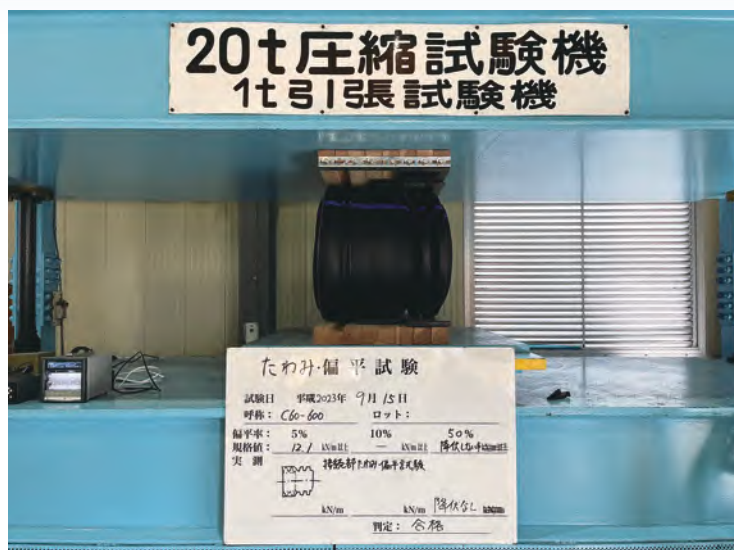 20t圧縮試験機
1t引張試験機
たわみ・偏平試験
試験日 平成2023年 9月 15日
呼称: C60-600 ロット:
偏平率: 5% 10% 50%
規格値: 12.1 kN/m以上 — kN/m以上 降伏しない事
実測 接続部たわみ・偏平試験
kN/m kN/m 降伏なし
判定: 合格